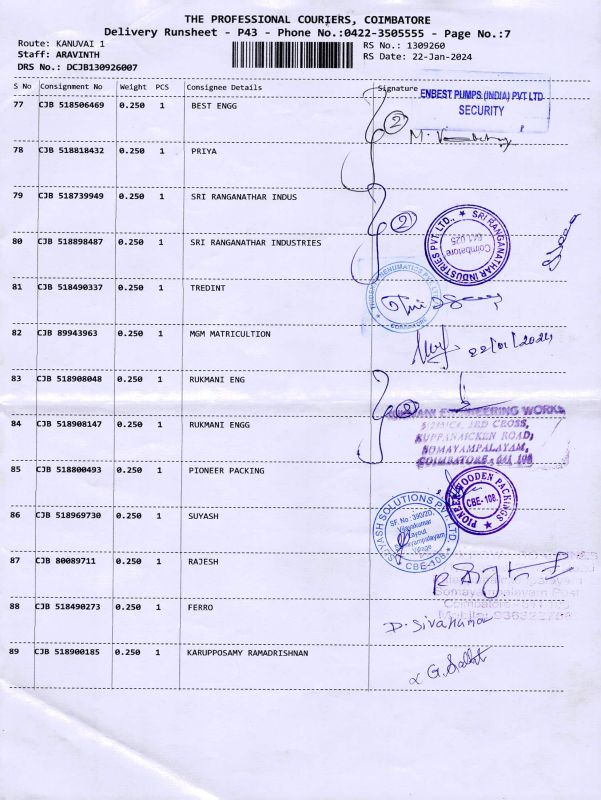 THE PROFESSIONAL COURIERS, COIMBATORE
Delivery Runsheet - P43 - Phone No.:0422-3505555 - Page No.:7
Route: KANUVAI 1
RS No.: 1309260
Staff: ARAVINTH
RS Date: 22-Jan-2024
DRS No.: DCJB130926007
S No Consignment No Weight PCS Consignee Details Signature
77 CJB 518506469 0.250 1 BEST ENGG
ENBEST PUMPS (INDIA) PVT LTD
SECURITY
2
78 CJB 518818432 0.250 1 PRIYA
79 CJB 518739949 0.250 1 SRI RANGANATHAR INDUS
2
SRI RANGANATHAR INDUSTRIES PVT. LTD.,
Coimbatore
641 025
80 CJB 518898487 0.250 1 SRI RANGANATHAR INDUSTRIES
81 CJB 518490337 0.250 1 TREDINT
COIMBATORE
82 CJB 89943963 0.250 1 MGM MATRICULTION
22/01/2024
83 CJB 518908048 0.250 1 RUKMANI ENG
2
ENGINEERING WORKS
3RD CROSS,
KUPPANAICKEN ROAD,
SOMAYAMPALAYAM,
COIMBATORE - 641 108
84 CJB 518908147 0.250 1 RUKMANI ENGG
85 CJB 518800493 0.250 1 PIONEER PACKING
PIONEER WOODEN PACKINGS
CBE-108.
86 CJB 518969730 0.250 1 SUYASH
SUYASH SOLUTIONS PVT. LTD.
SF. No. 390/2D,
Layout
Somayampalayam
Village
CBE-108
87 CJB 80089711 0.250 1 RAJESH
Somayampalayam Post
Coimbatore
88 CJB 518490273 0.250 1 FERRO
D. Sivakumar
89 CJB 518900185 0.250 1 KARUPPOSAMY RAMADRISHNAN